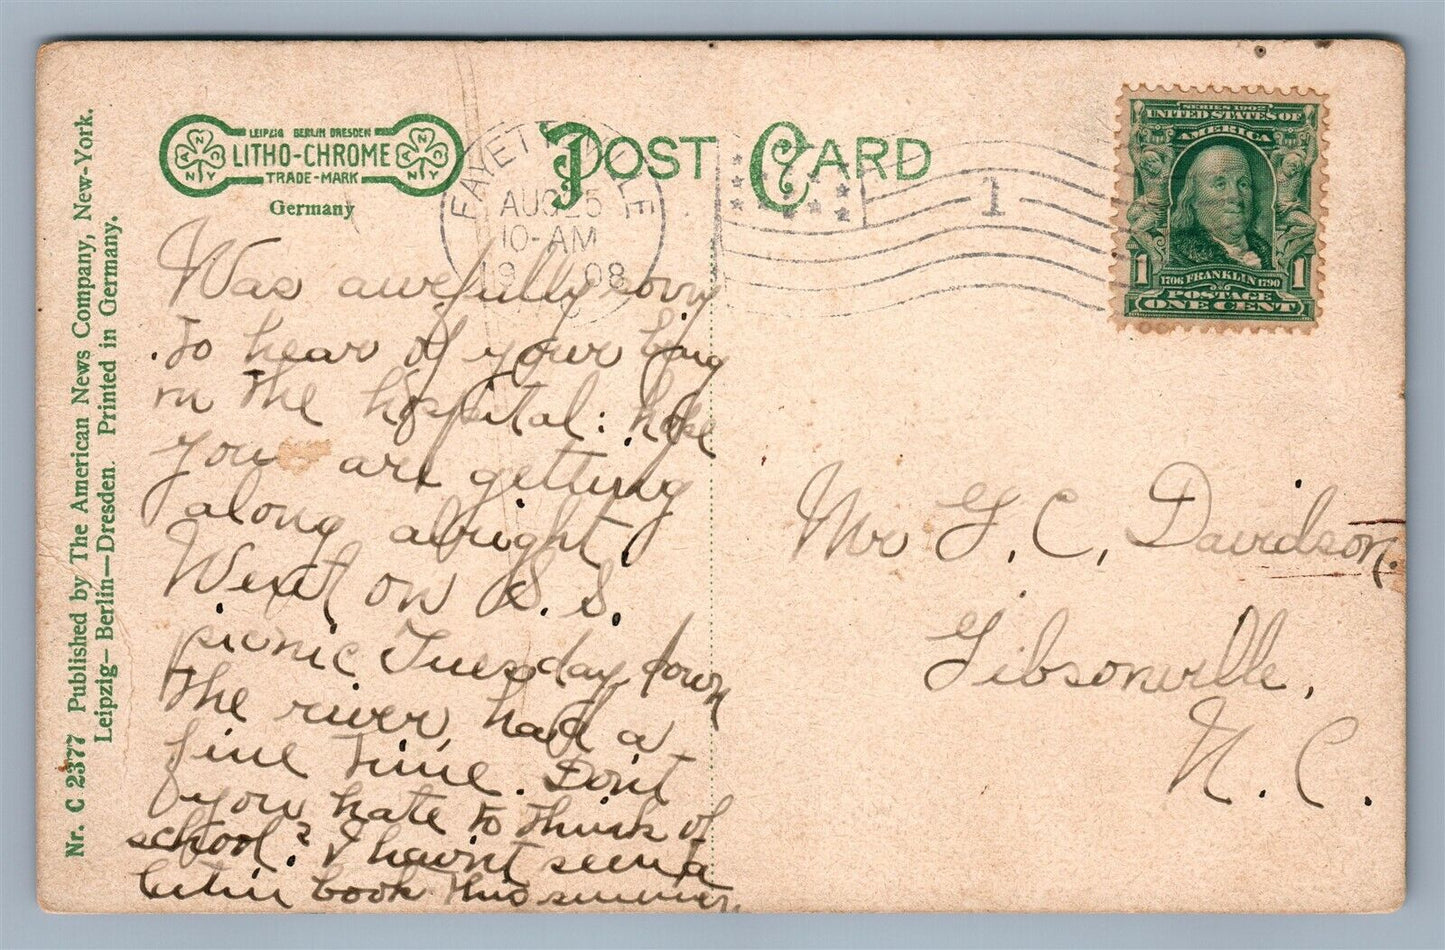 Nr. C 2377 Published by The American News Company, New-York.
Leipzig—Berlin—Dresden. Printed in Germany.
LEIPZIG BERLIN DRESDEN
LITHO-CHROME
TRADE-MARK
Germany
POST CARD
FAYETTEVILLE
AUG 25
10-AM
1908
1
SERIES 1902
UNITED STATES OF
AMERICA
1 1706 FRANKLIN 1790 1
POSTAGE
ONE CENT
Was awefully sorry
to hear of your being
in the hospital: hope
you are getting
along alright,
Went on S. S.
picnic Tuesday, down
the river, had a
fine time. Don't
you hate to think of
school? I havn't seen a
latin book this summer
Mr G. C. Davidson.
Gibsonville,
N. C.